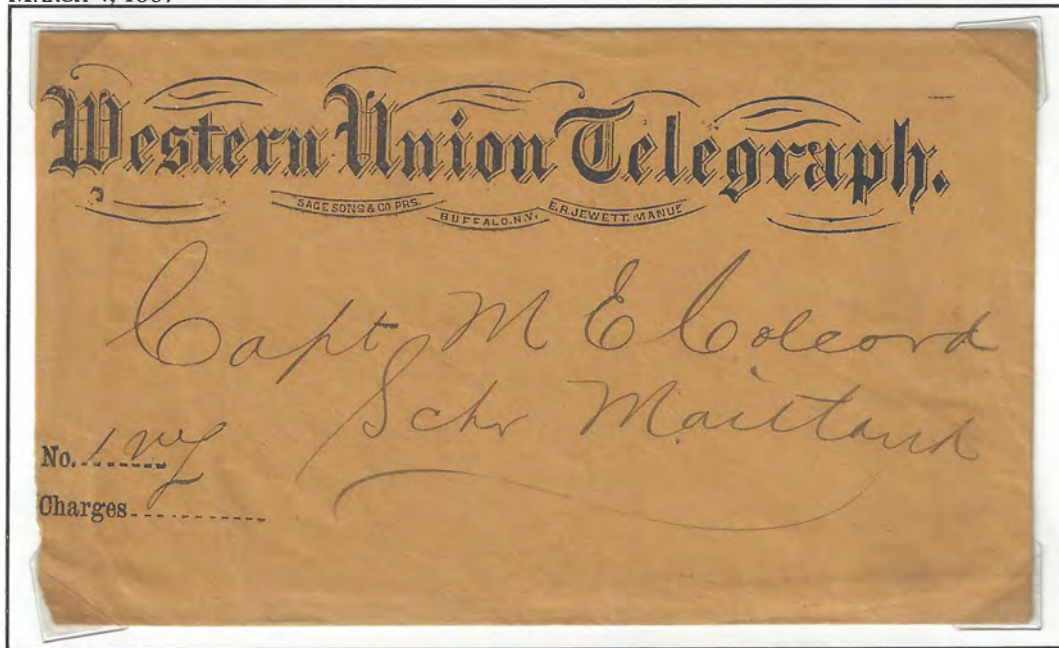 Western Union Telegraph.
SAGE SONS & CO PRS.
BUFFALO, N.Y.
E.R. JEWETT. MANUF
Capt M E Colcord
Schr Maitland
No.
Charges